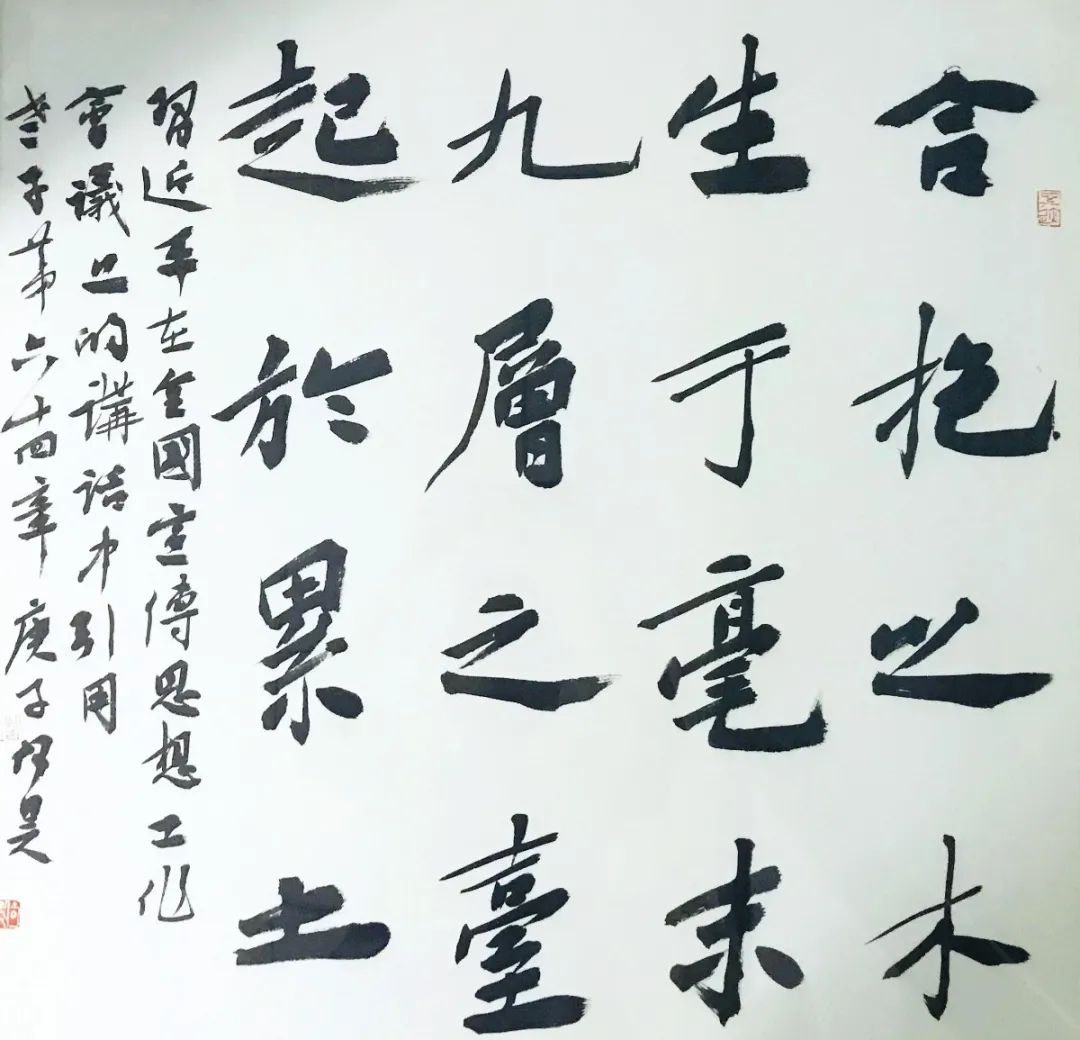 合抱之木
生于毫末
九層之臺
起於累土
習近平在全國宣傳思想工作
會議上的講話中引用
老子第六十四章庚子